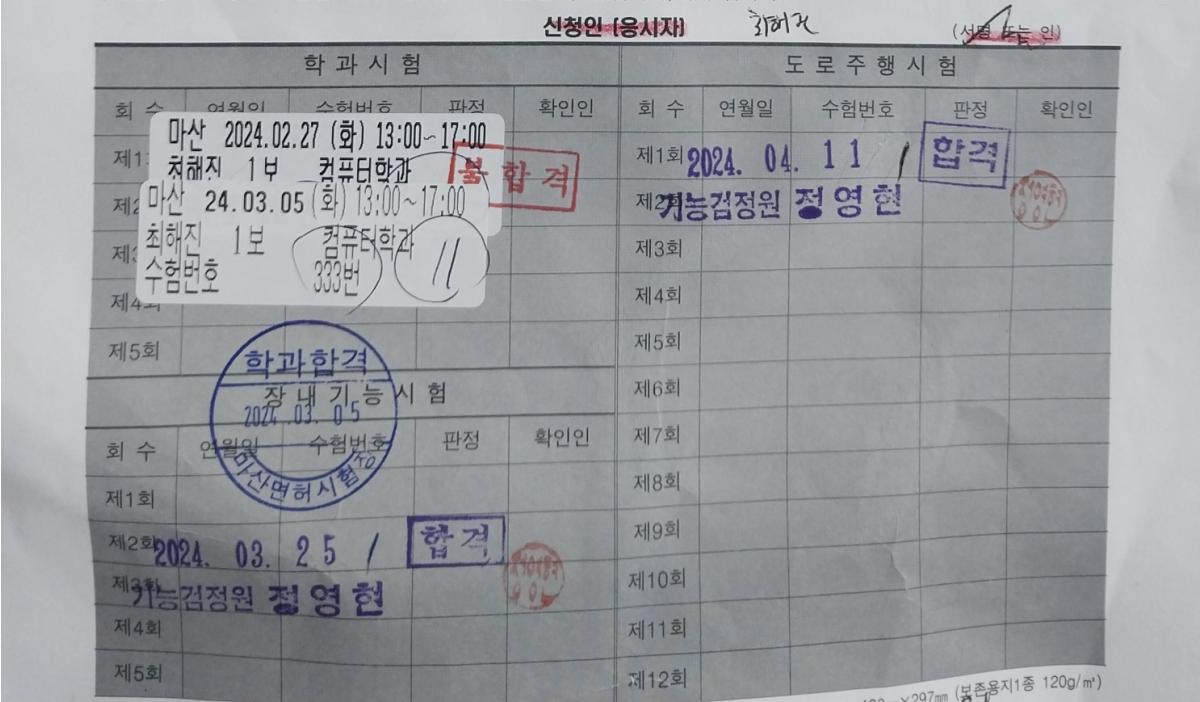 신청인 (응시자) 최해진 (서명 또는 인)
학 과 시 험
회 수 연월일 수험번호 판정 확인인
마산 2024.02.27 (화) 13:00~17:00
최해진 1보 컴퓨터학과
불합격
마산 24.03.05 (화) 13:00~17:00
최해진 1보 컴퓨터학과
수험번호 333번 11
제1회
제2회
제3회
제4회
제5회
학과합격
2024.03.05
마산면허시험
장 내 기 능 시 험
회 수 연월일 수험번호 판정 확인인
제1회
제2회 2024. 03. 25 / 합격
제3회 기능검정원 정영현
제4회
제5회
도 로 주 행 시 험
회 수 연월일 수험번호 판정 확인인
제1회 2024. 04. 11 / 합격
제2회 기능검정원 정영현
제3회
제4회
제5회
제6회
제7회
제8회
제9회
제10회
제11회
제12회
×297㎜ (보존용지1종 120g/㎡)